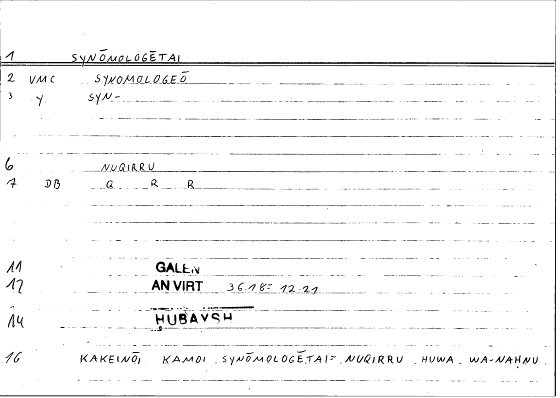 1 SYNŌMOLOGĒTAI
2 VMC SYNOMOLOGEŌ
3 Y SYN-
6 NUQIRRU
7 DB Q R R
11 GALEN
12 AN VIRT 36.18= 12.21
14 ḤUBAYSH
16 KAKEINŌI KAMOI SYNŌMOLOGĒTAI= NUQIRRU HUWA WA-NAḤNU